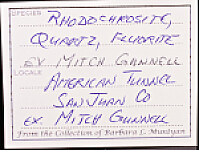 SPECIES
RHODOCHROSITE,
QUARTZ, FLUORITE
EX MITCH GUNNELL
LOCALE
AMERICAN TUNNEL
SAN JUAN CO
EX MITCH GUNNELL
From the Collection of Barbara L. Muntyan